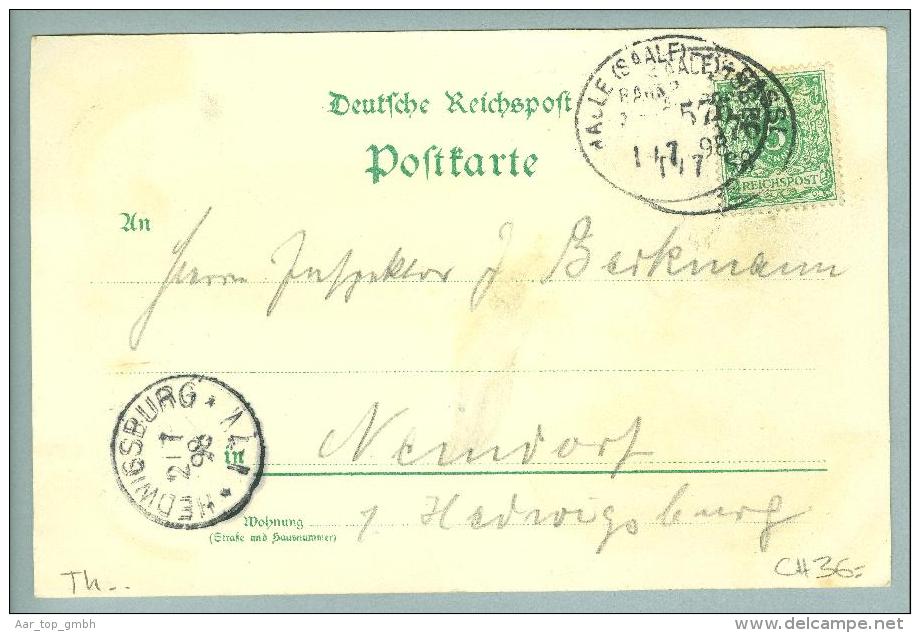 Deutsche Reichspost
Postkarte
HALLE (SAALE) CASSEL
BAHNP
576
1 17 98
5
REICHSPOST
An
Herrn Inspektor J Barkmann
in Neindorf
HEDWIGSBURG
2 1 7
98
Wohnung
(Straße und Hausnummer)
Hedwigsburg
Th..
CH 36.-
Aar_top_gmbh
www.delcampe.net